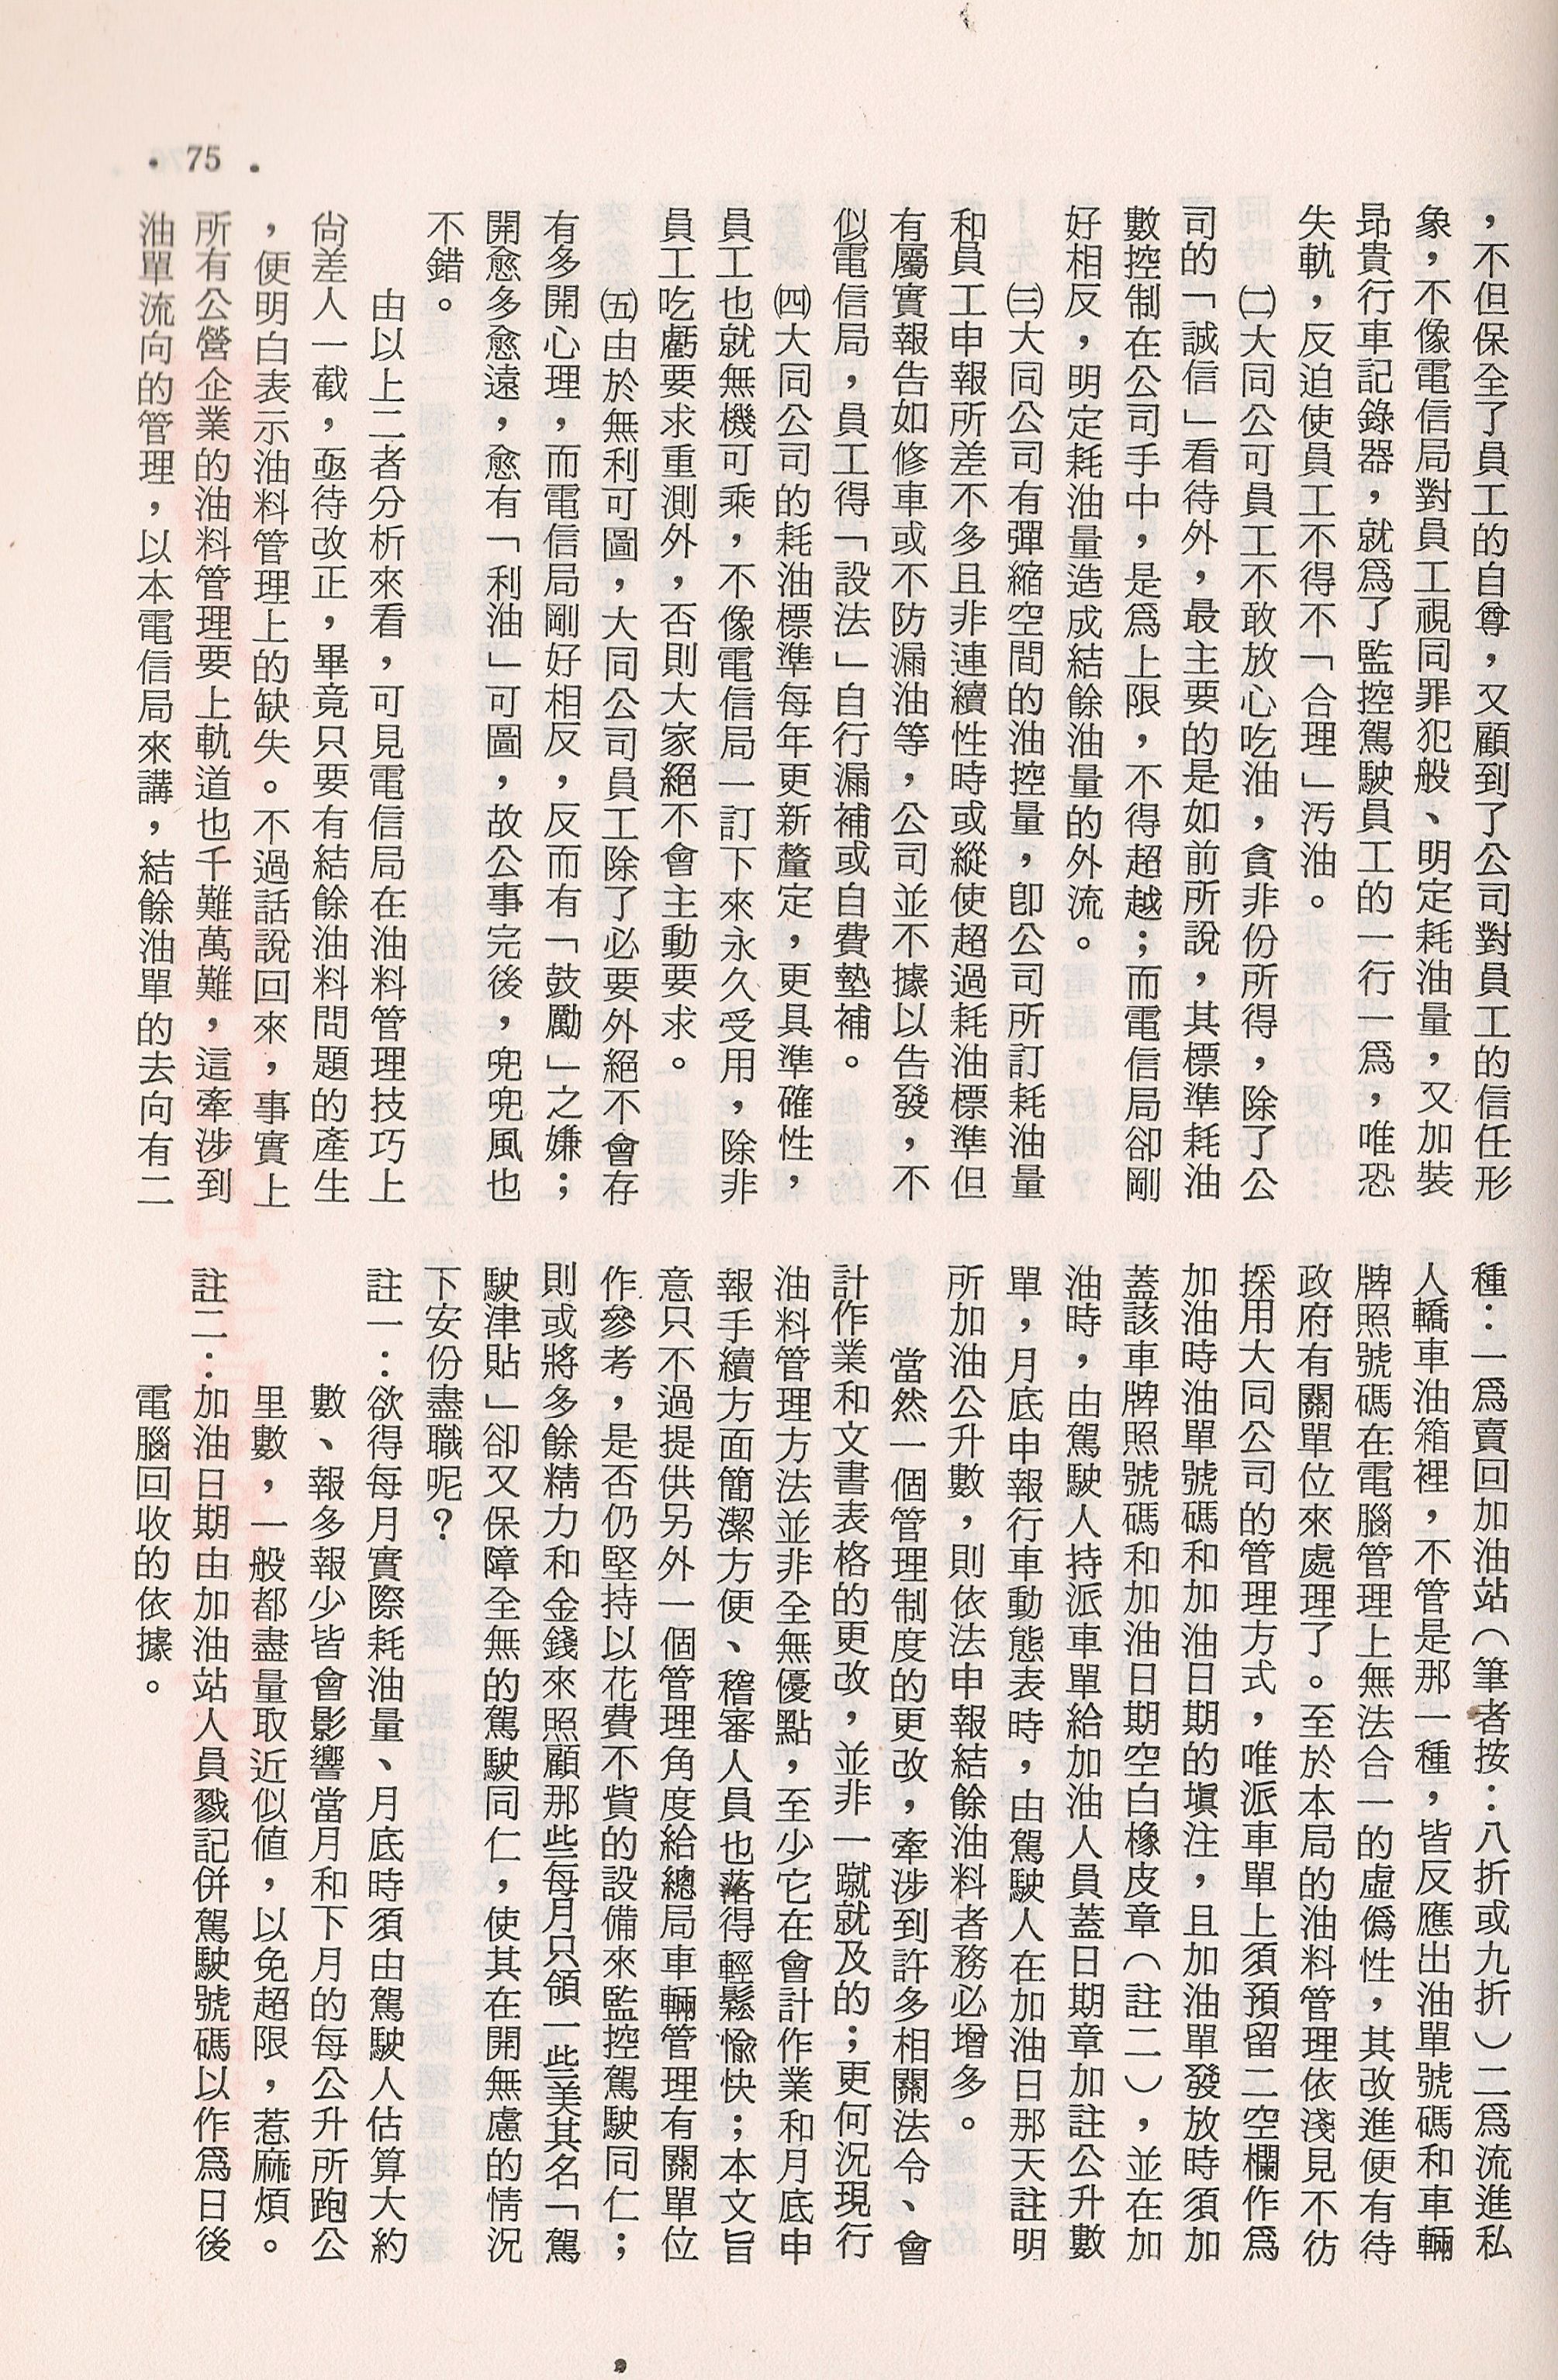 ，不但保全了員工的自尊，又顧到了公司對員工的信任形
象，不像電信局對員工視同罪犯般、明定耗油量，又加裝
昂貴行車記錄器，就爲了監控駕駛員工的一行一爲，唯恐
失軌，反迫使員工不得不「合理」污油。
㈡大同公司員工不敢放心吃油，貪非份所得，除了公
司的「誠信」看待外，最主要的是如前所說，其標準耗油
數控制在公司手中，是爲上限，不得超越；而電信局卻剛
好相反，明定耗油量造成結餘油量的外流。
㈢大同公司有彈縮空間的油控量，卽公司所訂耗油量
和員工申報所差不多且非連續性時或縱使超過耗油標準但
有屬實報告如修車或不防漏油等，公司並不據以告發，不
似電信局，員工得「設法」自行漏補或自費墊補。
㈣大同公司的耗油標準每年更新釐定，更具準確性，
員工也就無機可乘，不像電信局一訂下來永久受用，除非
員工吃虧要求重測外，否則大家絕不會主動要求。
㈤由於無利可圖，大同公司員工除了必要外絕不會存
有多開心理，而電信局剛好相反，反而有「鼓勵」之嫌；
開愈多愈遠，愈有「利油」可圖，故公事完後，兜兜風也
不錯。
由以上二者分析來看，可見電信局在油料管理技巧上
尙差人一截，亟待改正，畢竟只要有結餘油料問題的產生
，便明白表示油料管理上的缺失。不過話說回來，事實上
所有公營企業的油料管理要上軌道也千難萬難，這牽涉到
油單流向的管理，以本電信局來講，結餘油單的去向有二
種：一爲賣回加油站（筆者按：八折或九折）二爲流進私
人轎車油箱裡，不管是那一種，皆反應出油單號碼和車輛
牌照號碼在電腦管理上無法合一的虛僞性，其改進便有待
政府有關單位來處理了。至於本局的油料管理依淺見不彷
採用大同公司的管理方式，唯派車單上須預留二空欄作爲
加油時油單號碼和加油日期的塡注，且加油單發放時須加
蓋該車牌照號碼和加油日期空白橡皮章（註二），並在加
油時，由駕駛人持派車單給加油人員蓋日期章加註公升數
單，月底申報行車動態表時，由駕駛人在加油日那天註明
所加油公升數，則依法申報結餘油料者務必增多。
當然一個管理制度的更改，牽涉到許多相關法令、會
計作業和文書表格的更改，並非一蹴就及的；更何況現行
油料管理方法並非全無優點，至少它在會計作業和月底申
報手續方面簡潔方便、稽審人員也落得輕鬆愉快；本文旨
意只不過提供另外一個管理角度給總局車輛管理有關單位
作參考，是否仍堅持以花費不貲的設備來監控駕駛同仁；
則或將多餘精力和金錢來照顧那些每月只領一些美其名「駕
駛津貼」卻又保障全無的駕駛同仁，使其在開無慮的情況
下安份盡職呢？
註一：欲得每月實際耗油量、月底時須由駕駛人估算大約
數、報多報少皆會影響當月和下月的每公升所跑公
里數，一般都盡量取近似値，以免超限，惹麻煩。
註二：加油日期由加油站人員戮記併駕駛號碼以作爲日後
電腦回收的依據。
• 75 •